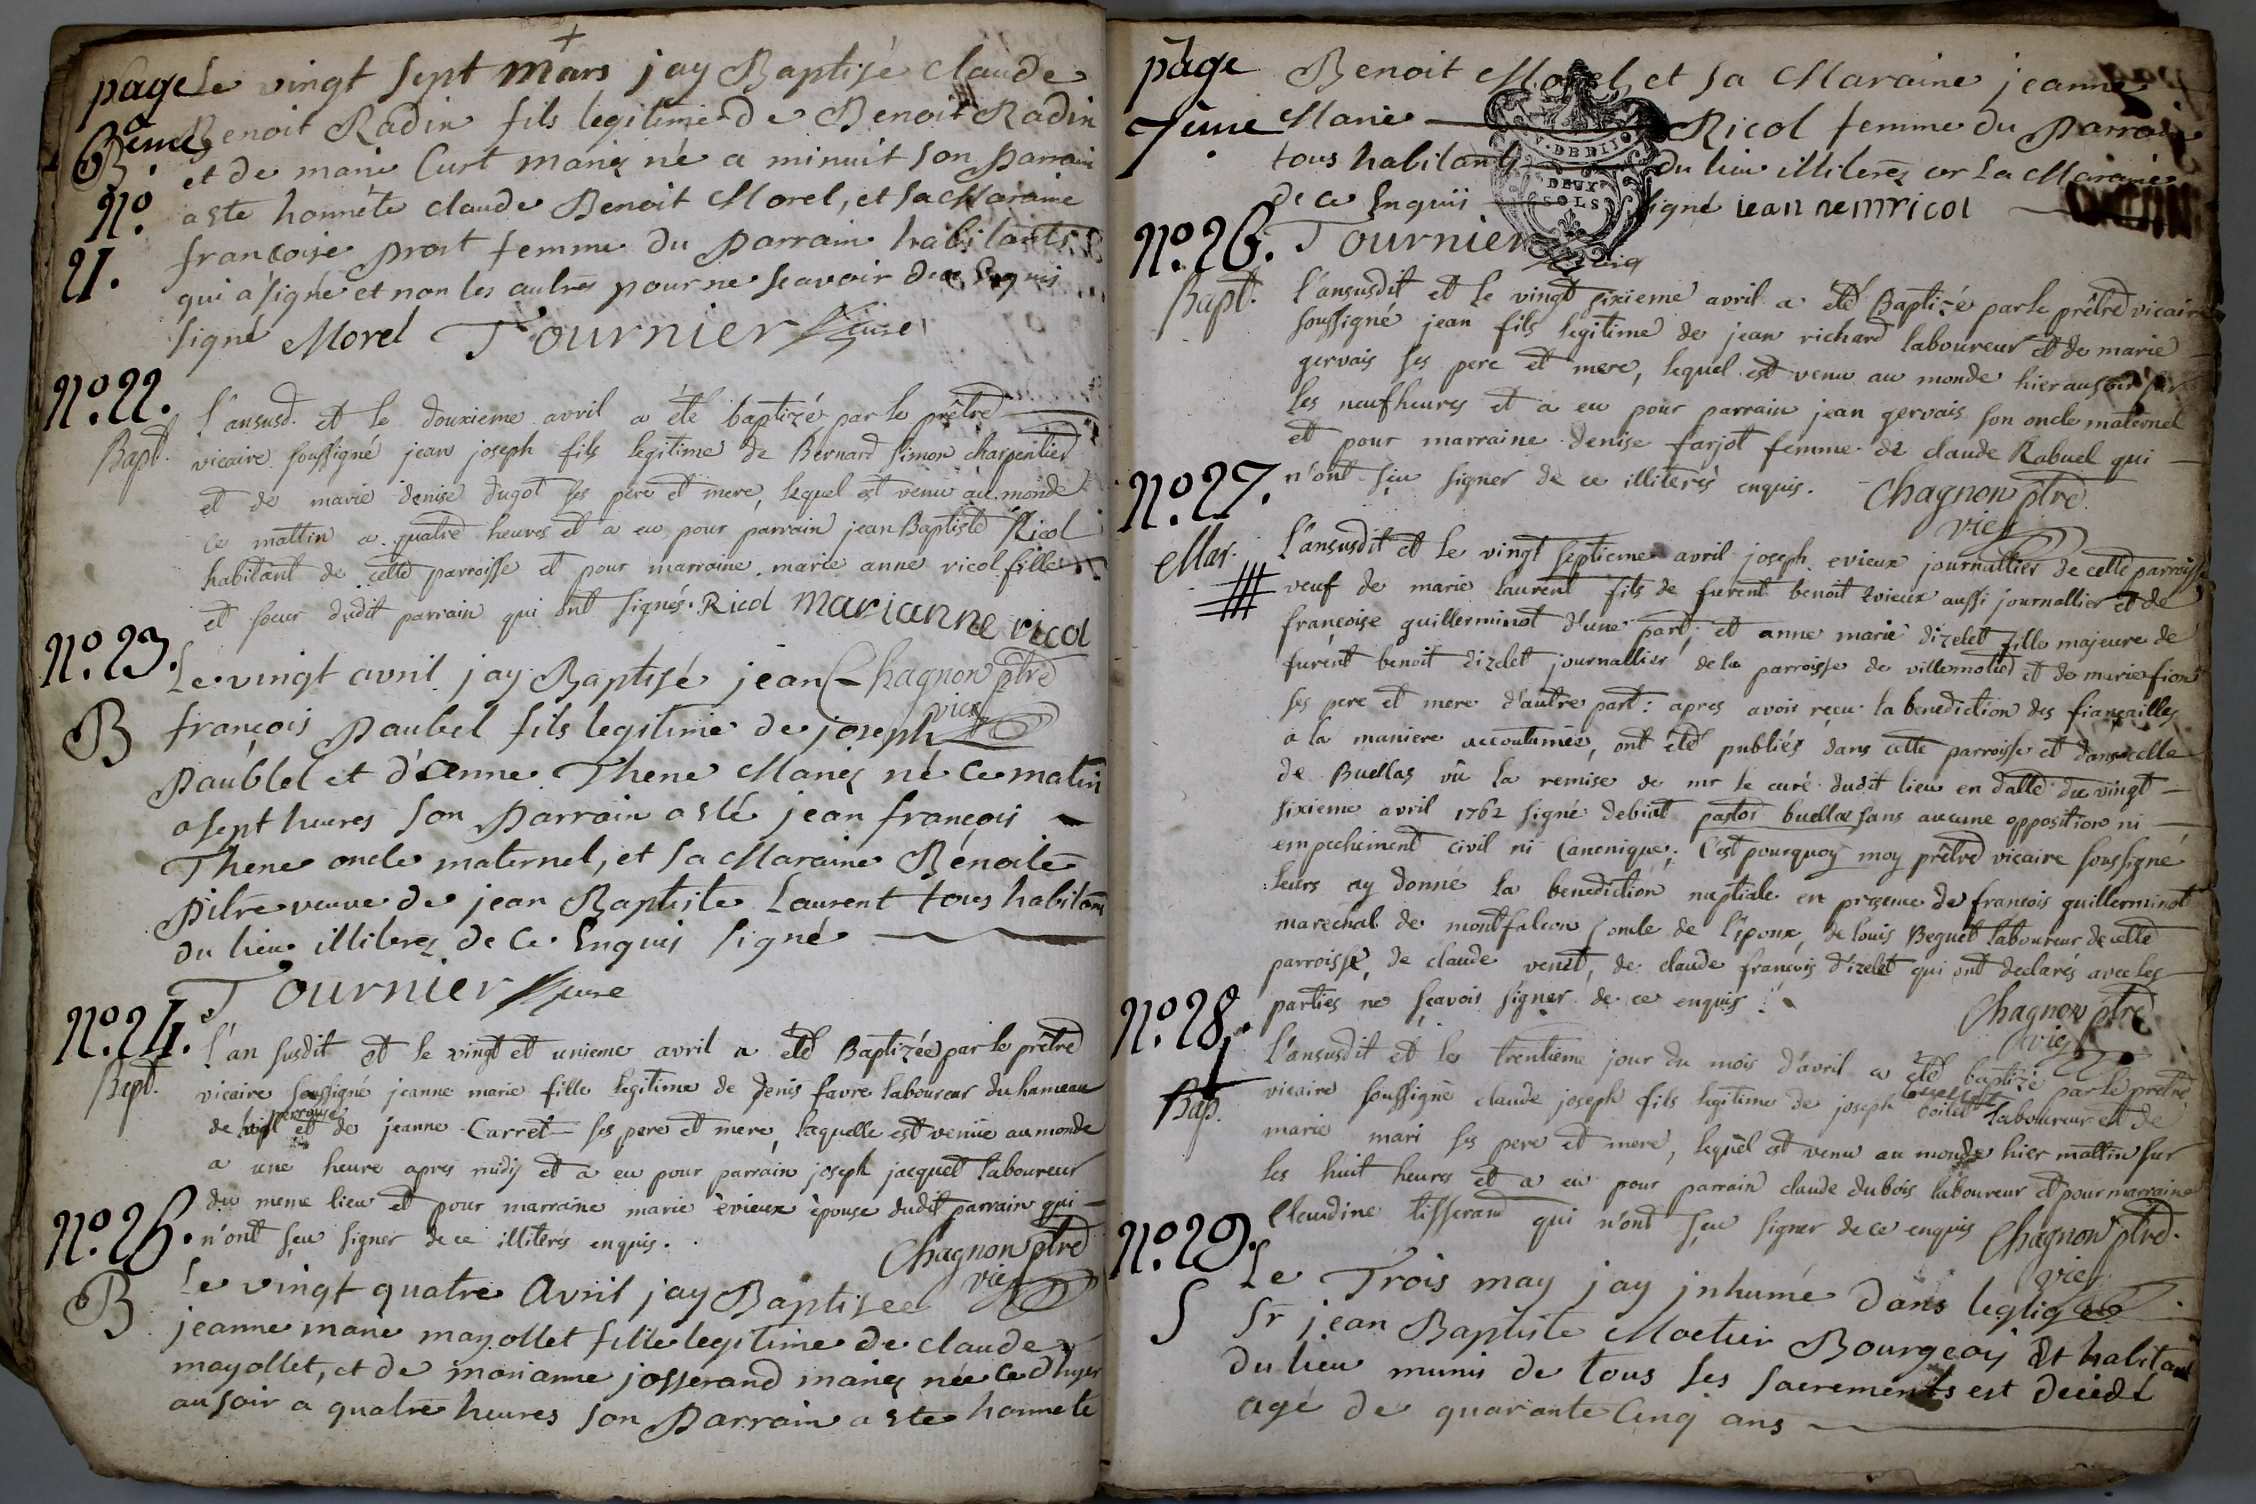 page Le vingt sept mars jay Baptisé claude
6eme Benoit Radin fils legitime de Benoit Radin
B et de marie Curt mariés né a minuit son parrain
N° a esté honnête claude Benoit Morel, et sa Maraine
21. françoise prost femme du parrain habitants
qui a signé et non les autres pour ne scavoir de ce Enquis
signé Morel Tournier curé
N°. 22.
Bapt. l'ansusd. et le douxieme avril a été baptizé par le prêtre
vicaire soussigné jean joseph fils legitime de Bernard Simon charpentier
et de marie denise dugot ses pere et mere, lequel est venu au monde
ce mattin a quatre heures et a eu pour parrain jean Baptiste Ricol
habitant de cette parroisse et pour marraine marie anne ricol fille
et soeur dudit parrain qui ont signés. Ricol marianne ricol
Chagnon ptre
vic
N°. 23.
Le vingt avril jay Baptisé jean
B françois Paubel fils legitime de joseph
Paublel et d'anne Thene Mariés né ce matin
a sept heures son Parrain a esté jean françois
Thene oncle maternel, et sa Maraine Benoite
pitre veuve de jean Baptiste Laurent tous habitans
du lieu illiteres de ce Enquis signé
Tournier curé
N°. 24.
Bapt. l'an susdit et le vingt et unieme avril a été Baptizée par le prêtre
vicaire soussigné jeanne marie fille legitime de denis favre laboureur du hameau
de perrouse et de jeanne Carret ses pere et mere, laquelle est venüe au monde
a une heure apres midy et a eu pour parrain joseph jacquet laboureur
du meme lieu et pour marraine marie èvieux épouse dudit parrain qui
n'ont sçu signer de ce illiterés enquis.
Chagnon ptre
vic
N°. 25.
B Le vingt quatre Avril jay Baptisee
jeanne marie mayollet fille legitime de claude
mayollet, et de marianne josserand mariés née ce d'hyer
au soir a quatre heures son Parrain a este honnete
page Benoit Morel, et sa Maraine jeanne
7eme Marie Ricol femme du Parrain
tous habitants du lieu illiterés or la Maraine
de ce Enquis signé jean Ricol
V. DE DIJON
DEUX
SOLS
N°. 26. Tournier
Bapt. l'ansusdit et le vingt sixieme avril a été Baptizé par le prêtre vicaire
soussigné jean fils legitime de jean richard laboureur et de marie
gervais ses pere et mere, lequel est venu au monde hier au soir sur
les neuf heures et a eu pour parrain jean gervais son oncle maternel
et pour marraine denise farjot femme de claude Rabuel qui
n'ont sçu signer de ce illiterés enquis. Chagnon ptre
vic
N°. 27.
Mar. l'ansusdit et le vingt septieme avril joseph evieux journallier de cette parroisse
veuf de marie laurent fils de furent benoit Evieux aussi journallier et de
françoise guillerminot d'une part, et anne marie dizelet fille majeure de
furent benoit dizelet journallier de la parroisse de villemotier et de marie fion
ses pere et mere d'autre part: apres avoir reçu la benediction des fiançailles
a la maniere accoutumée, ont été publiés dans cette parroisse et dans celle
de Buellas vû la remise de mr le curé dudit lieu en datte du vingt
sixieme avril 1762 signé debiat pastor buellas sans aucune opposition ni
empechement civil ni Canonique; C'est pourquoy moy prêtre vicaire soussigné
leurs ay donné la benediction nuptiale en presence de francois guillerminot
marechal de montfalcon oncle de l'époux, de louis Beguet laboureur de cette
parroisse, de claude venet, de claude françois dizelet qui ont declarés avec les
parties ne sçavoir signer de ce enquis
Chagnon ptre
vic
N°. 28.
Bap. l'ansusdit et le trentieme jour du mois d'avril a été baptizé par le prêtre
vicaire soussigné claude joseph fils legitime de joseph laboureur et de
marie mari ses pere et mere, lequel est venu au monde hier mattin sur
les huit heures et a eu pour parrain claude dubois laboureur et pour marraine
Claudine tisserand qui n'ont sçu signer de ce enquis Chagnon ptre.
vic
N°. 29.
S Le Trois may jay jnhumé dans leglise
Sr jean Baptiste Moetier Bourgeois et habitant
du lieu munis de tous ses sacrements est decedé
agé de quarante Cinq ans